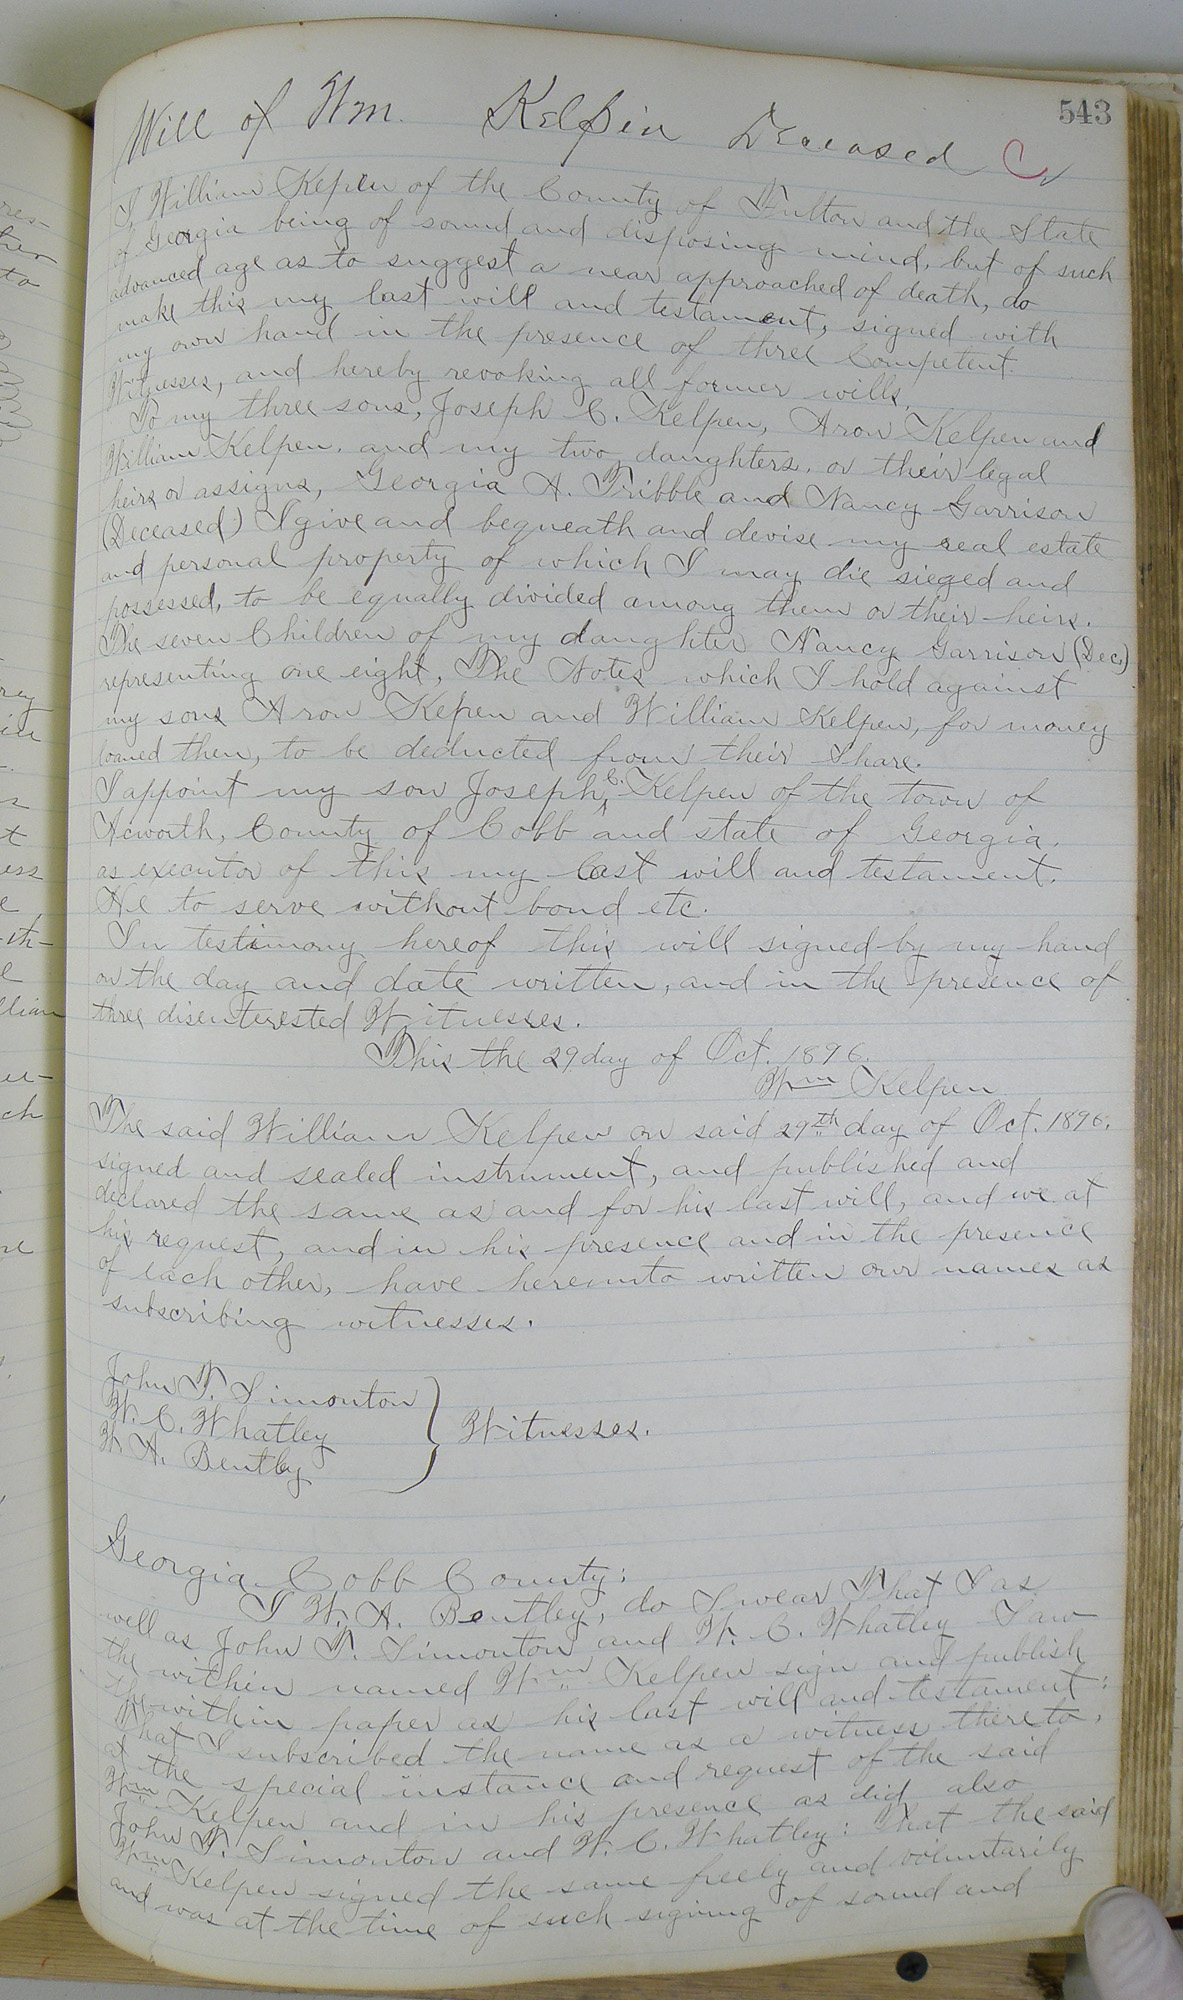 543
Will of Wm. Kelpin Deceased
I, William Kepen of the County of Fulton and the State
of Georgia being of sound and disposing mind, but of such
advanced age as to suggest a near approached of death, do
make this my last will and testament, signed with
my own hand in the presence of three Competent
Witnesses, and hereby revoking all former wills.
To my three sons, Joseph C. Kelpen, Aron Kelpen and
William Kelpen, and my two daughters, or their legal
heirs or assigns, Georgia A. Tribble and Nancy Garrison
(Deceased) I give and bequeath and devise my real estate
and personal property of which I may die sieged and
possessed, to be equally divided among them or their heirs.
The seven Children of my daughter Nancy Garrison (Dec.)
representing one eight, The Notes which I hold against
my sons Aron Kepen and William Kelpen, for money
loaned then, to be deducted from their Share.
I appoint my son Joseph C. Kelpen of the town of
Acworth, County of Cobb and state of Georgia,
as executor of this my last will and testament.
He to serve without bond etc.
In testimony hereof this will signed by my hand
on the day and date written, and in the presence of
three disenterested Witnesses.
This the 29 day of Oct. 1896.
Wm Kelpen
The said William Kelpen on said 29th day of Oct. 1896.
signed and sealed instrument, and published and
declared the same as and for his last will, and we at
his request, and in his presence and in the presence
of each other, have hereunto written our names as
subscribing witnesses.
John T. Simonton
W. C. Whatley
W. A. Bentley
Witnesses.
Georgia Cobb County:
I W. A. Bentley, do Swear That I as
well as John T. Simonton and W. C. Whatley Saw
the within named Wm Kelpen sign and publish
the within paper as his last will and testament:
That I subscribed the name as a witness thereto,
at the special instance and request of the said
Wm Kelpen and in his presence as did also
John T. Simonton and W. C. Whatley: That the said
Wm Kelpen signed the same freely and voluntarily
and was at the time of such signing of sound and